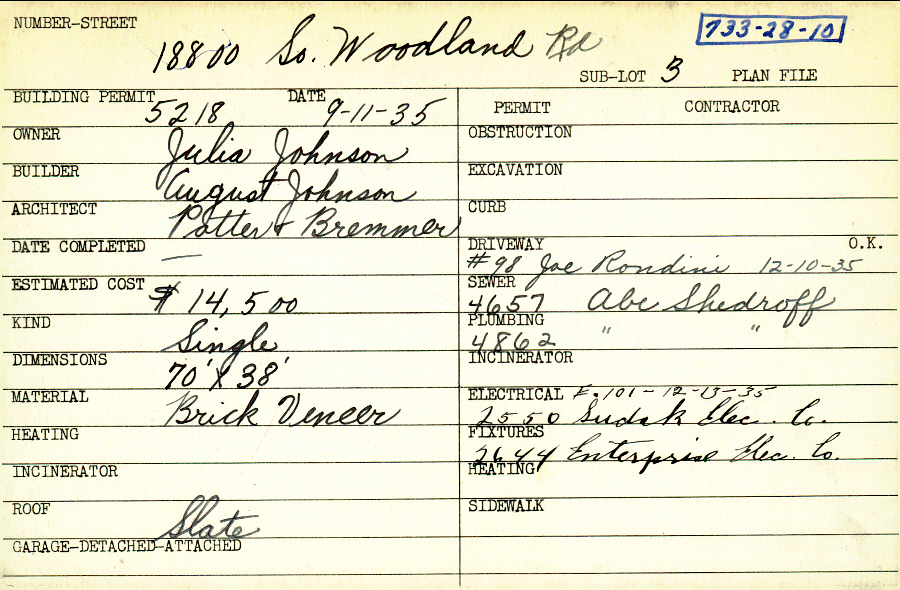 NUMBER-STREET
733-28-10
18800 So. Woodland Rd
SUB-LOT 3 PLAN FILE
BUILDING PERMIT 5218 DATE 9-11-35
OWNER Julia Johnson
BUILDER August Johnson
ARCHITECT Potter & Bremmer
DATE COMPLETED —
ESTIMATED COST $14,500
KIND Single
DIMENSIONS 70' X 38'
MATERIAL Brick Veneer
HEATING
INCINERATOR
ROOF Slate
GARAGE-DETACHED-ATTACHED
PERMIT CONTRACTOR
OBSTRUCTION
EXCAVATION
CURB
DRIVEWAY O.K.
#98 Joe Rondini 12-10-35
SEWER
4657 Abe Shedroff
PLUMBING
4862 " "
INCINERATOR
ELECTRICAL E.101-12-13-35
2550 Sudak Elec. Co.
FIXTURES
2644 Enterprise Elec. Co.
HEATING
SIDEWALK